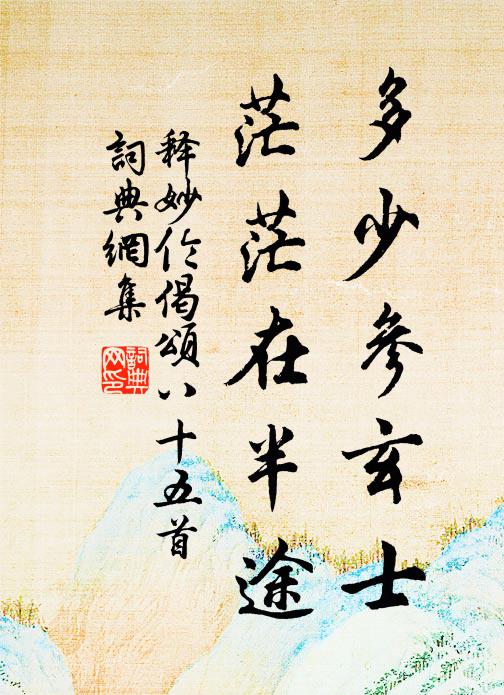 多少參玄士
茫茫在半途
释妙伦偈頌八十五首
詞典網集
詞典网印